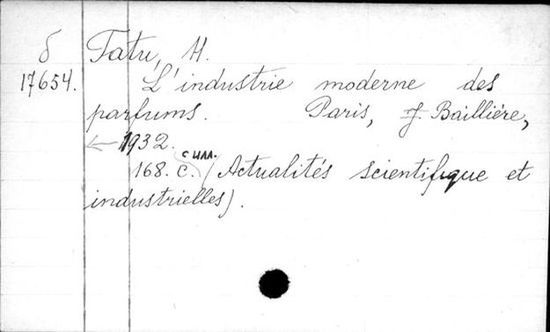 б Tatu, H.
17654. L'industrie moderne des
parfums. Paris, J. Baillière,
← 1932.
168. c. с илл. (Actualités scientifique et
industrielles).